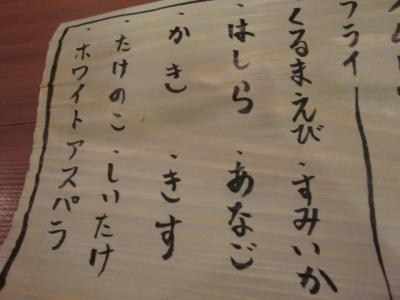 フライ
くるまえび・すみいか
・はしら ・あなご
・かき ・きす
・たけのこ・しいたけ
・ホワイトアスパラ